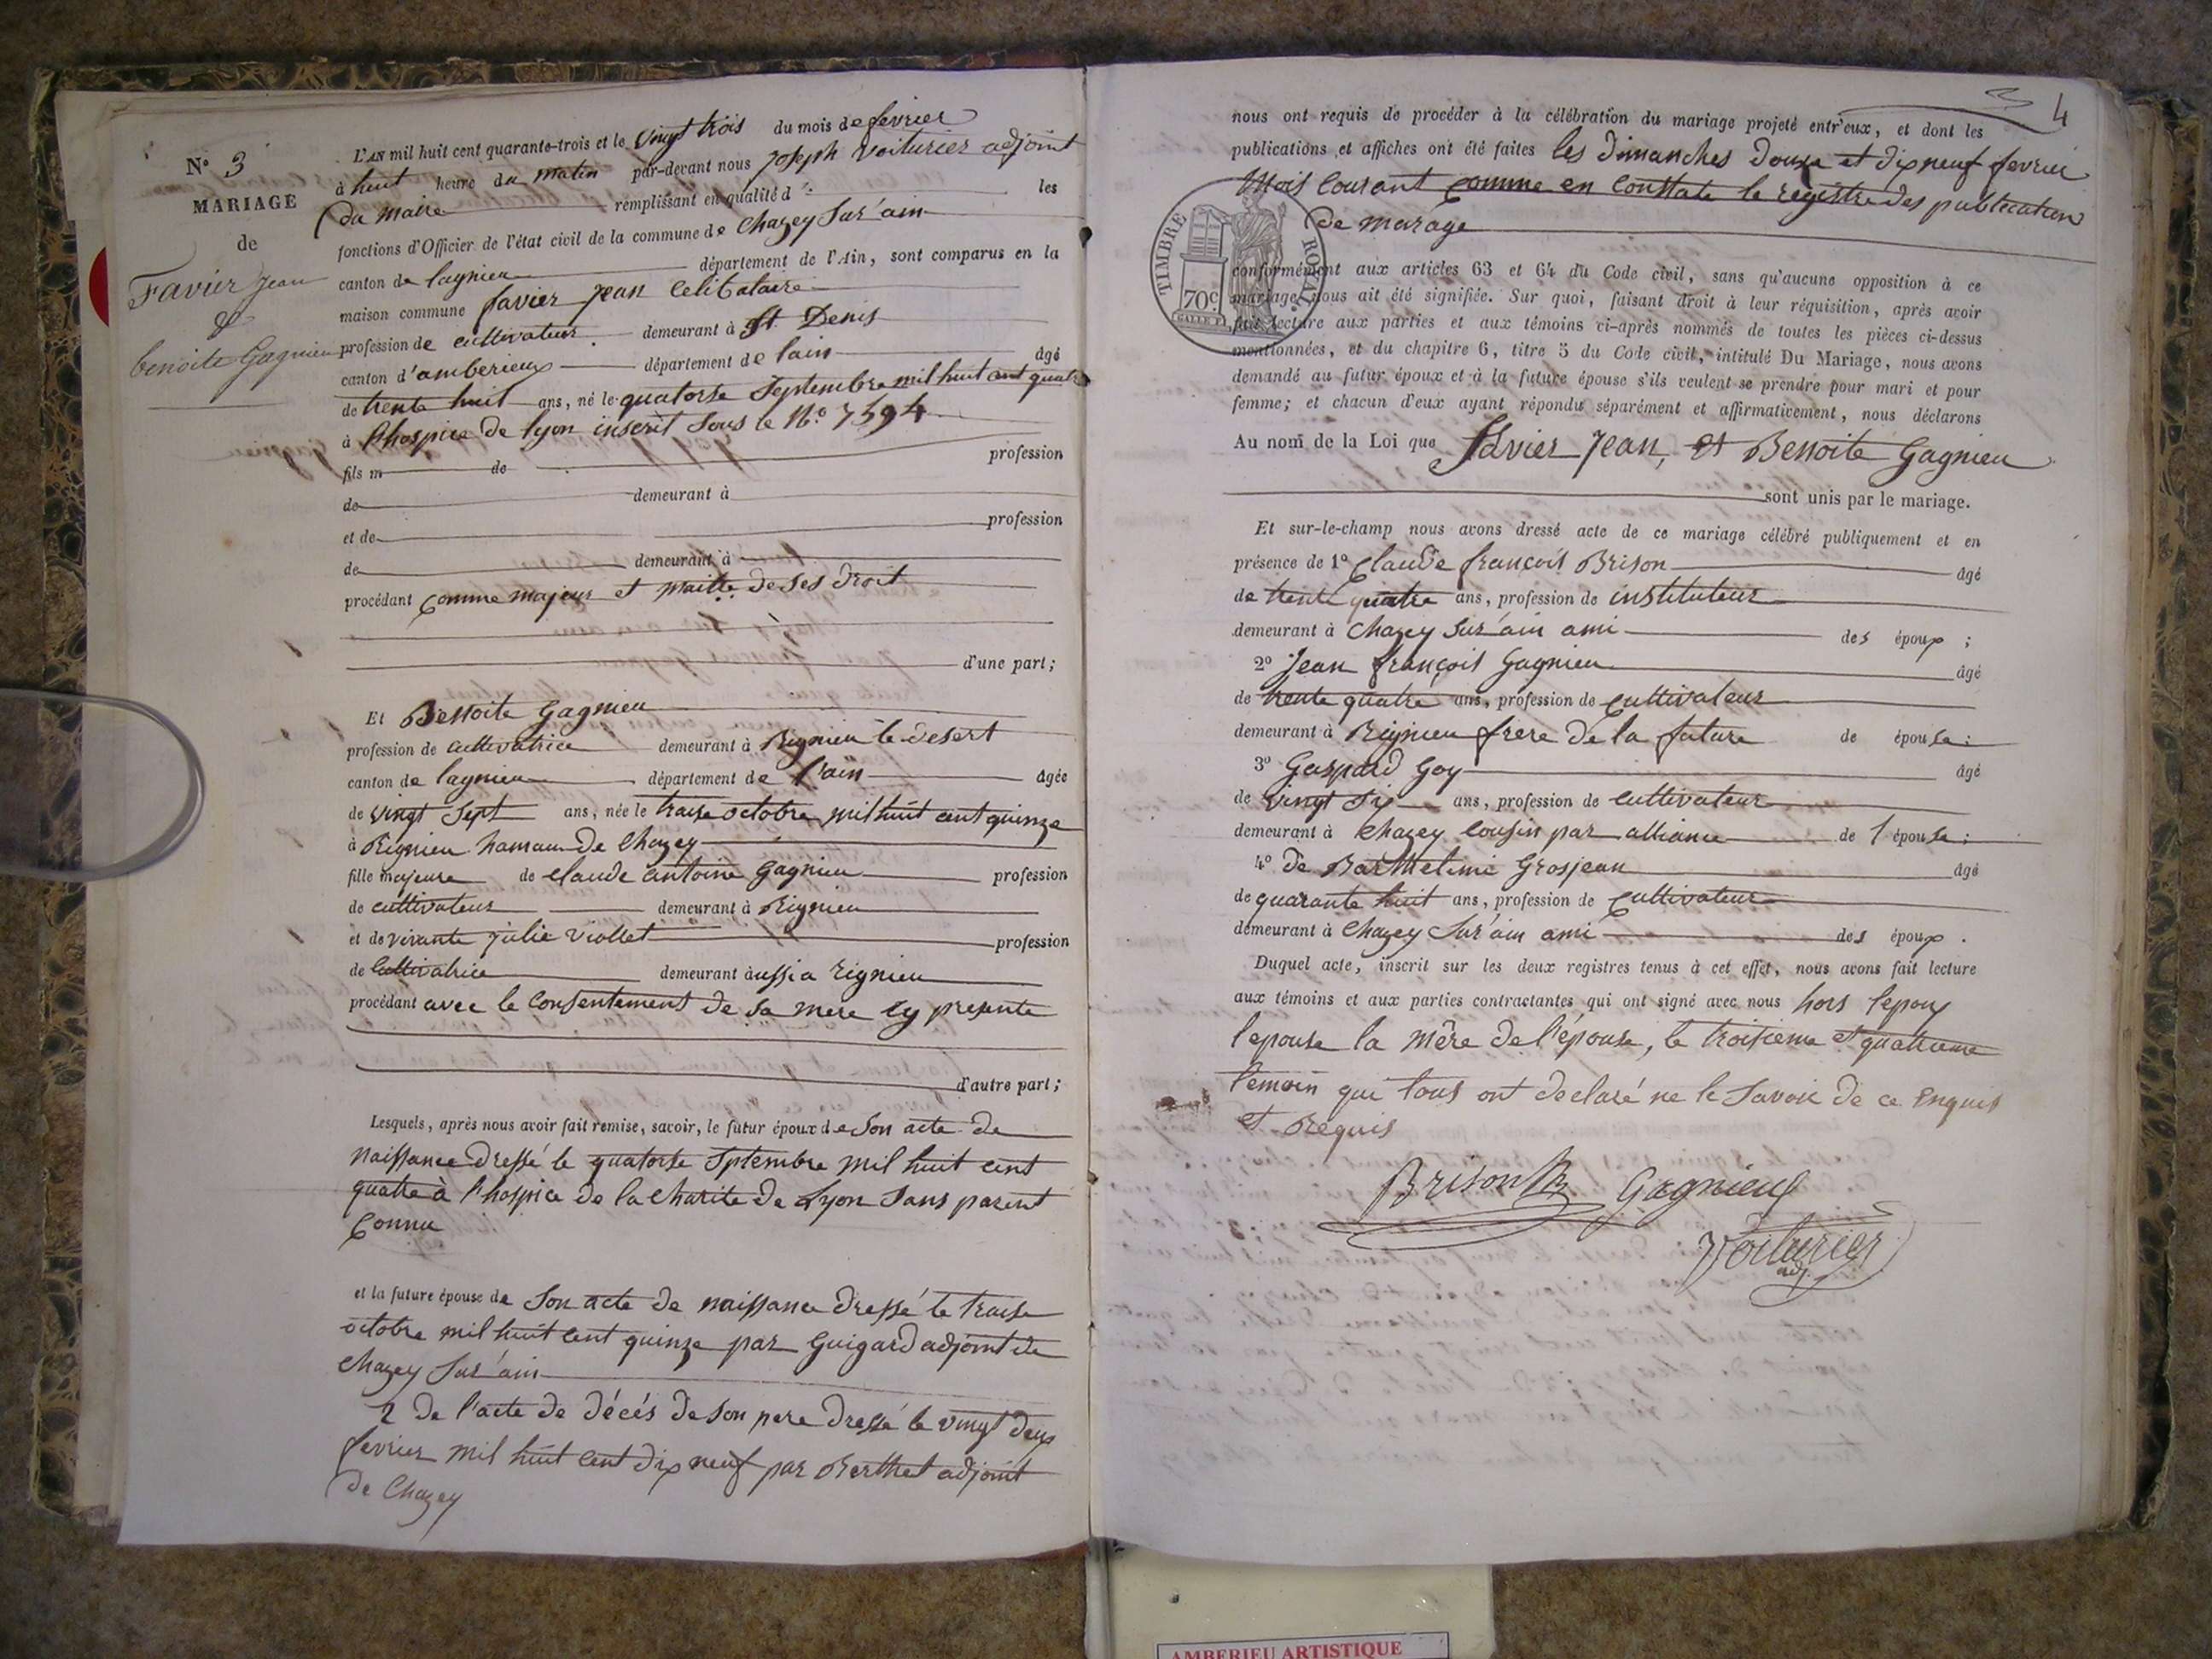 N.º 3
MARIAGE
de
Favier Jean
&
benoite Gagnieu
L'AN mil huit cent quarante-trois et le vingt trois du mois de fevrier
à huit heure du matin par-devant nous Joseph Voiturier adjoint
du maire remplissant en qualité d les
fonctions d'Officier de l'état civil de la commune de Chazey Sur'ain
canton de lagnieu département de l'Ain, sont comparus en la
maison commune favier Jean Celibataire
profession de cultivateur demeurant à St Denis
canton d'amberieux département de lain âgé
de trente huit ans, né le quatorse Septembre mil huit cent quatre
à l'hospice de lyon inscrit Sous le N.º 7594
fils m de profession
de demeurant à
et de profession
de demeurant à
procédant comme majeur et maitte de ses droit
d'une part;
Et Benoite Gagnieu
profession de cultivatrice demeurant à Rignieu le desert
canton de lagnieu département de l'ain âgée
de vingt Sept ans, née le traise octobre mil huit cent quinze
à Rignieu hamau de Chazey
fille majeure de claude antoine Gagnieu profession
de cultivateur demeurant à Rignieu
et de vivante Julie Viollet profession
de Cultivatrice demeurant àussi a Rignieu
procédant avec le Consentement de sa mere cy presente
d'autre part;
Lesquels, après nous avoir fait remise, savoir, le futur époux de Son acte de
naissance dressé le quatorse Sptembre mil huit cent
quatre à l'hospice de la charite de Lyon Sans parent
Connu
et la future épouse de Son acte de naissance dressé le traise
octobre mil huit cent quinze par Guigard adjoint de
Chazey Sur'ain
2 De l'acte de décés de Son pere dressé le vingt deux
fevrier mil huit Cent dix neuf par Berthet adjoint
de Chazey
4
nous ont requis de procéder à la célébration du mariage projeté entr'eux, et dont les
publications et affiches ont été faites les dimanches douze et dix neuf fevrier
Mois Courant comme en Constate le registre des publication
de marage
TIMBRE ROYAL
70c
conformément aux articles 63 et 64 du Code civil, sans qu'aucune opposition à ce
mariage nous ait été signifiée. Sur quoi, faisant droit à leur réquisition, après avoir
fait lecture aux parties et aux témoins ci-après nommés de toutes les pièces ci-dessus
mentionnées, et du chapitre 6, titre 5 du Code civil, intitulé Du Mariage, nous avons
demandé au futur époux et à la future épouse s'ils veulent se prendre pour mari et pour
femme; et chacun d'eux ayant répondu séparément et affirmativement, nous déclarons
Au nom de la Loi que Favier Jean, et Benoite Gagnieu
sont unis par le mariage.
Et sur-le-champ nous avons dressé acte de ce mariage célébré publiquement et en
présence de 1º Claude françois Brison âgé
de trente quatre ans, profession de instituteur
demeurant à Chazey Sur'ain ami des époux ;
2º Jean françois Gagnieu âgé
de trente quatre ans, profession de Cultivateur
demeurant à Rignieu frere de la future de épouse ;
3º Gaspard Goy âgé
de vingt Six ans, profession de Cultivateur
demeurant à Chazey Cousin par alliance de l épouse ;
4º de Barthelimi Grosjean âgé
de quarante huit ans, profession de Cultivateur
demeurant à Chazey Sur'ain ami des époux .
Duquel acte, inscrit sur les deux registres tenus à cet effet, nous avons fait lecture
aux témoins et aux parties contractantes qui ont signé avec nous hors lepoux
lepouse la mêre de l'épouse, le troisieme et quatrieme
temoin qui tous ont declaré ne le Savoir de ce Enquis
et Requis
Brison Gagnieux
Voiturier
adj.
AMBERIEU ARTISTIQUE